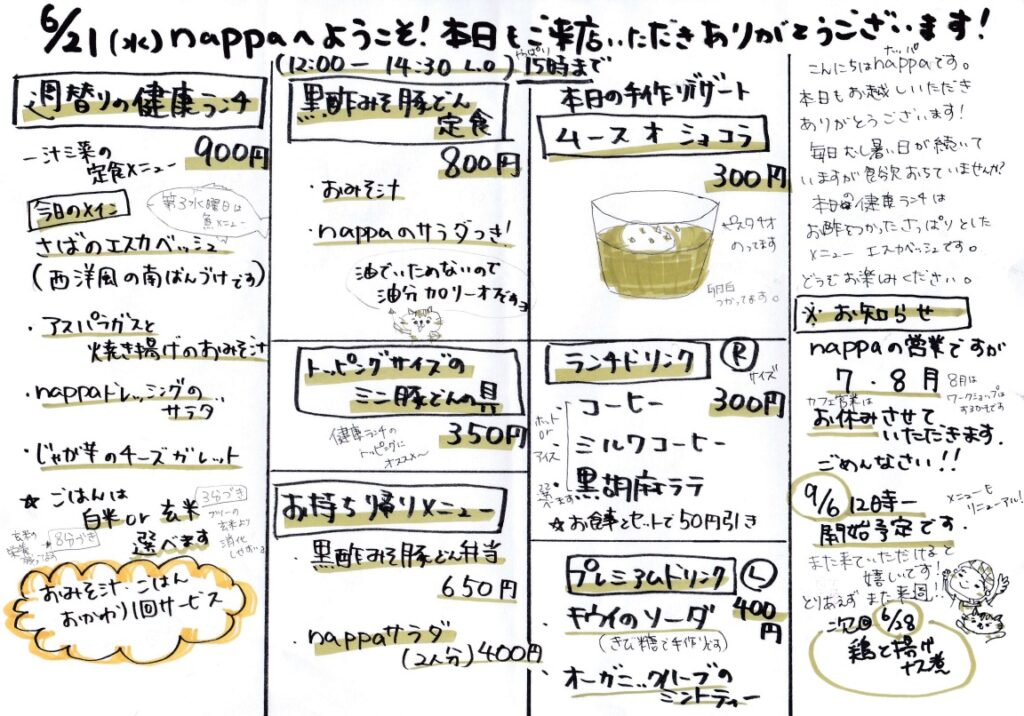 6/21(水)nappaへようこそ!本日もご来店いただきありがとうございます!
(12:00－14:30 L.O)
やっぱり
15時まで
週替りの健康ランチ
一汁三菜の
定食メニュー
900円
今日のメイン
第3水曜日は
魚メニュー
さばのエスカベッシュ
(西洋風の南ばんづけです)
・アスパラガスと
焼き揚げのおみそ汁
・nappaドレッシングの
サラダ
・じゃが芋のチーズガレット
☆ごはんは
白米or玄米
3分づき
選べます
8分づき
フツーの
玄米より
消化
しやすい
玄米の
栄養
おみそ汁・ごはん
おかわり1回サービス
黒酢みそ豚どん
定食
800円
・おみそ汁
・nappaのサラダつき!
油でいためないので
油分カロリーオフですヨ
トッピングサイズの
ミニ豚どんの具
350円
健康ランチの
トッピングに
オススメ〜
お持ち帰りメニュー
・黒酢みそ豚どん弁当
650円
・nappaサラダ
(2人分)400円
本日の手作りデザート
ムースオショコラ
300円
ピスタチオ
のってます
卵白
つかってます。
ランチドリンク
R
サイズ
300円
ホット
or
アイス
選べます
・コーヒー
・ミルクコーヒー
・黒胡麻ラテ
☆お食事とセットで50円引き
プレミアムドリンク
L
・キウイのソーダ
400円
(きび糖で手作りです)
・オーガニックハーブの
ミントティー
ナッパ
こんにちはnappaです。
本日もお越しいただき
ありがとうございます!
毎日むし暑い日が続いて
いますが食欲おちていませんか?
本日の健康ランチは
お酢をつかったさっぱりとした
メニュー エスカベッシュです。
どうぞお楽しみください。
※お知らせ
nappaの営業ですが
7・8月
8月は
ワークショップは
するかもです
カフェ営業は
お休みさせて
いただきます.
ごめんなさい!!
9/6 12時〜
メニューも
リニューアル!
開始予定です.
また来ていただけると
嬉しいです!
とりあえずまた来週!!
次回6/28
鶏と揚げ
ナス煮